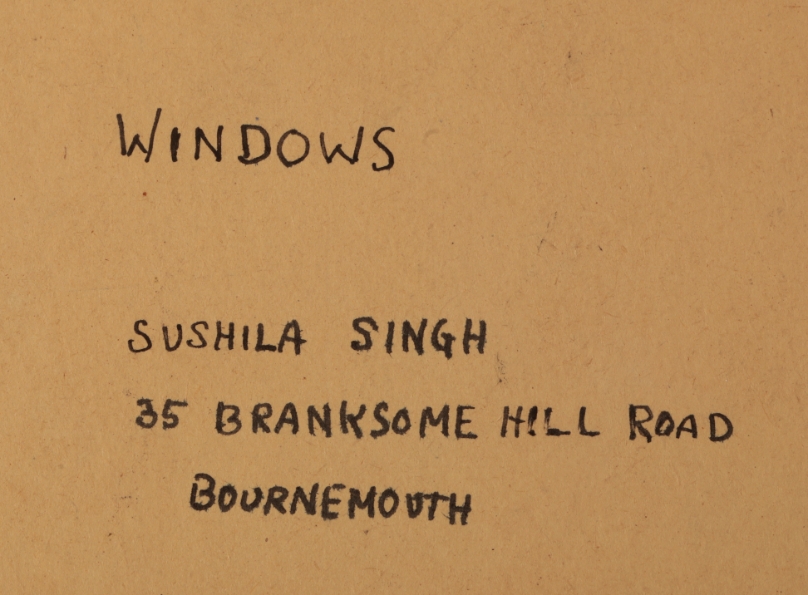 WINDOWS
SUSHILA SINGH
35 BRANKSOME HILL ROAD
BOURNEMOUTH